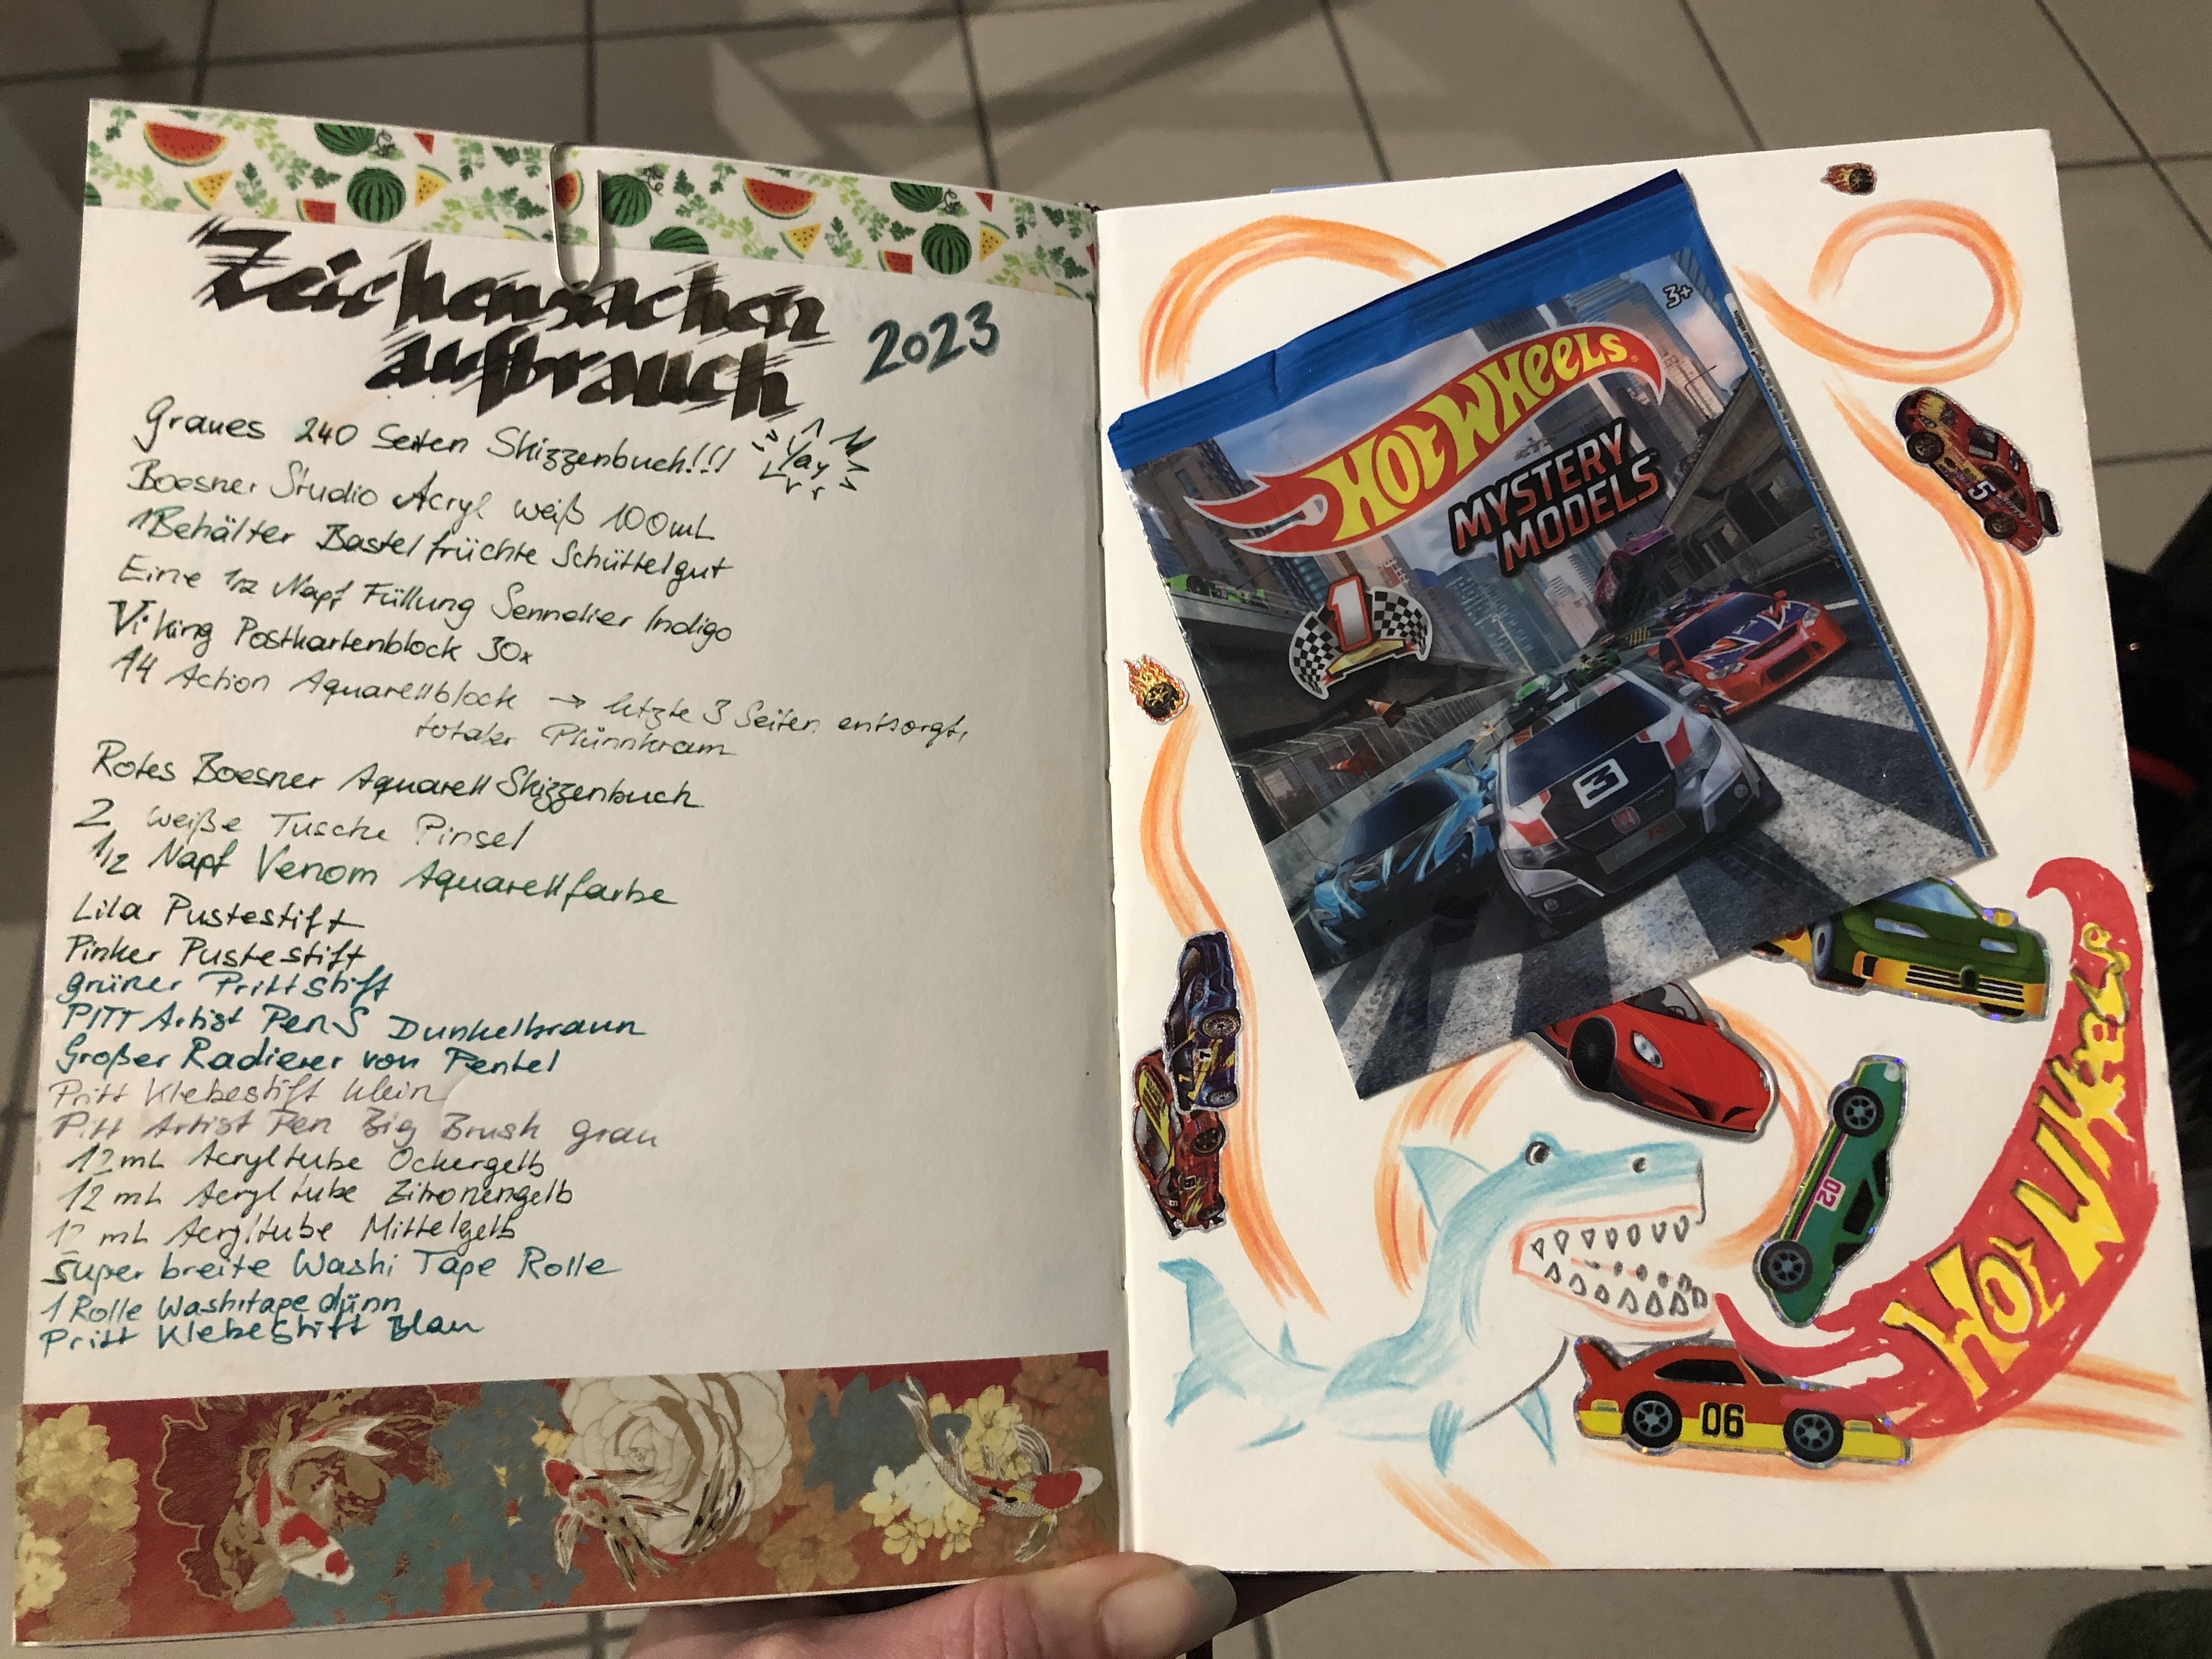 Zeichensachen
aufbrauch 2023
Graues 240 Seiten Skizzenbuch!!! Yay
Boesner Studio Acryl weiß 100mL
1 Behälter Bastelfrüchte Schüttelgut
Eine 1/2 Napf Füllung Sennelier Indigo
Viking Postkartenblock 30x
A4 Action Aquarellblock → letzte 3 Seiten entsorgt,
totaler Plünnkram
Rotes Boesner Aquarell Skizzenbuch
2 weiße Tusche Pinsel
1/2 Napf Venom Aquarellfarbe
Lila Pustestift
Pinker Pustestift
grüner Prittstift
PITT Artist Pen S Dunkelbraun
Großer Radierer von Pentel
Pritt Klebestift klein
Pitt Artist Pen Big Brush grau
12 mL Acryltube Ockergelb
12 mL Acryltube Zitronengelb
12 mL Acryltube Mittelgelb
Super breite Washi Tape Rolle
1 Rolle Washitape dünn
Pritt Klebestift Blau
3+
HOT WHEELS
MYSTERY
MODELS
1
3
5
02
06
HOT WHEELS